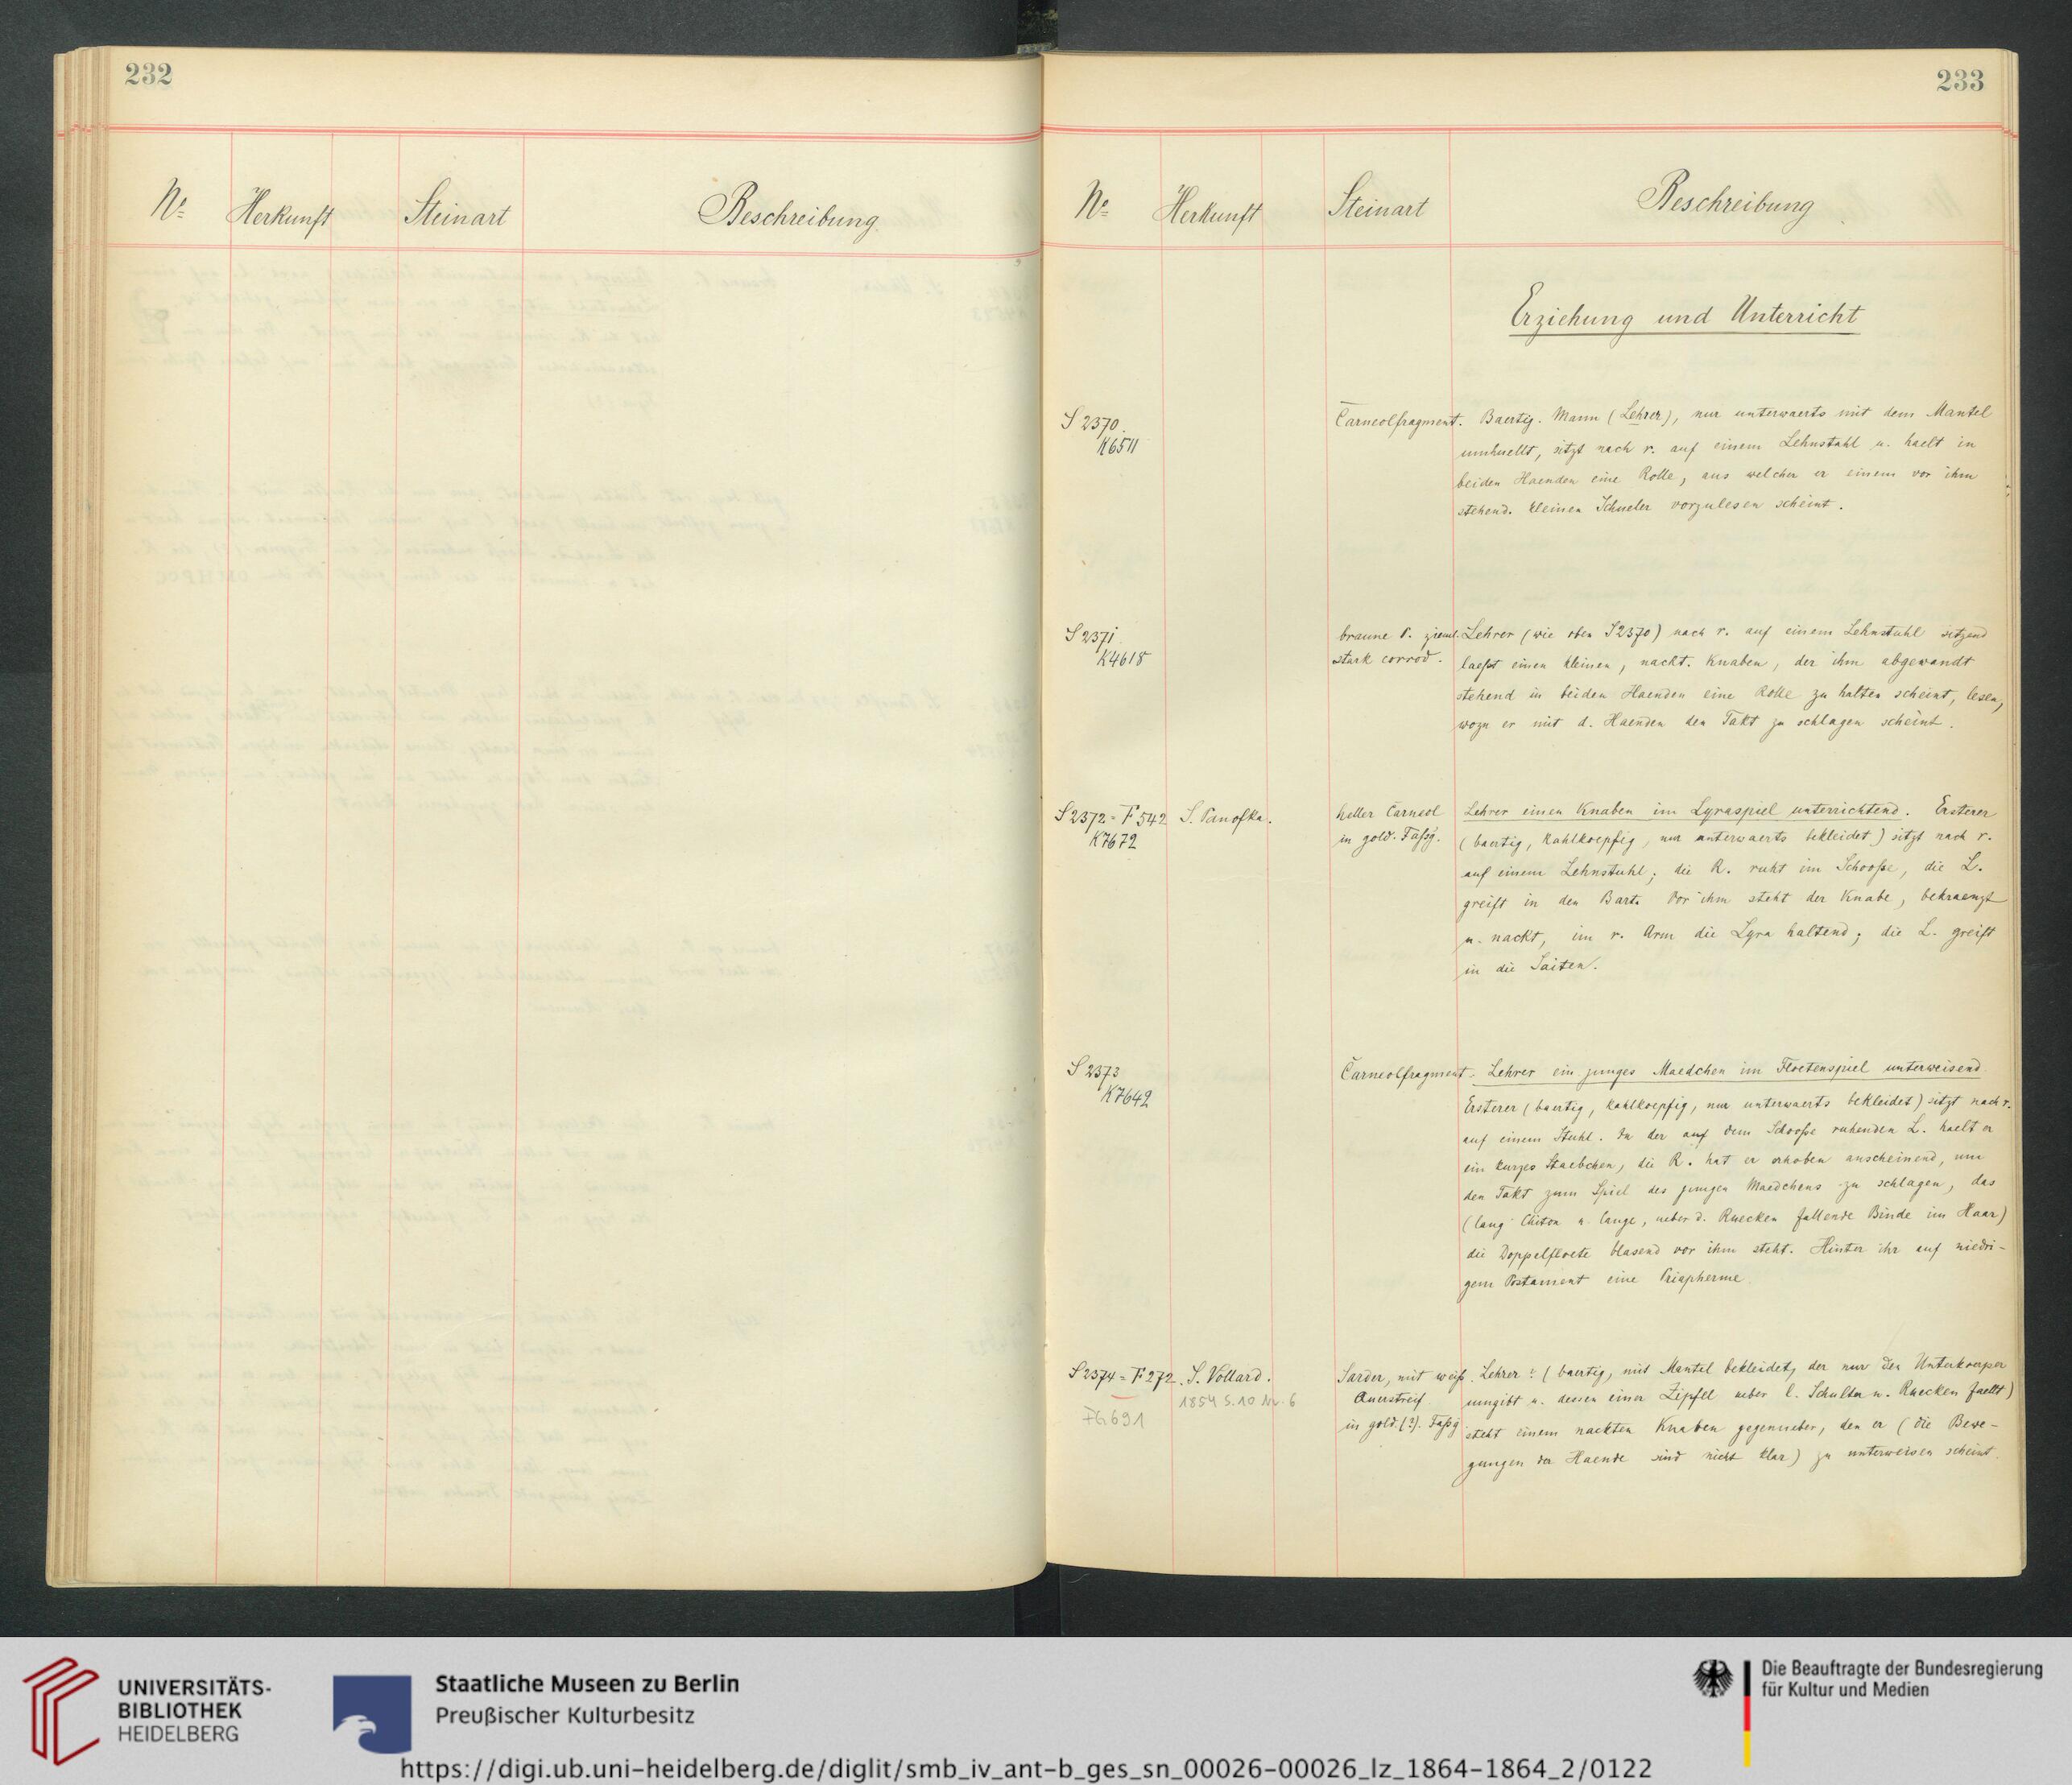 232
No Herkunft Steinart Beschreibung
233
No Herkunft Steinart Beschreibung
Erziehung und Unterricht
S 2370.
K6511
Carneolfragment.
Baertig. Mann (Lehrer), nur unterwaerts mit dem Mantel
umhuellt, sitzt nach r. auf einem Lehnstuhl u. haelt in
beiden Haenden eine Rolle, aus welcher er einem vor ihm
stehend. kleinen Schueler vorzulesen scheint.
S 2371
K4618
braune P. zieml.
stark corrod.
Lehrer (wie oben S2370) nach r. auf einem Lehnstuhl sitzend
laesst einen kleinen, nackt. Knaben, der ihm abgewandt
stehend in beiden Haenden eine Rolle zu halten scheint, lesen,
wozu er mit d. Haenden den Takt zu schlagen scheint.
S 2372 = F 542
K7672
S. Panofka.
heller Carneol
in gold. Faßg.
Lehrer einen Knaben im Lyraspiel unterrichtend. Ersterer
(baertig, kahlkoepfig, nur unterwaerts bekleidet) sitzt nach r.
auf einem Lehnstuhl; die R. ruht im Schooße, die L.
greift in den Bart. Vor ihm steht der Knabe, bekraenzt
u. nackt, im r. Arm die Lyra haltend; die L. greift
in die Saiten.
S 2373
K7642
Carneolfragment.
Lehrer ein junges Maedchen im Floetenspiel unterweisend
Ersterer (baertig, kahlkoepfig, nur unterwaerts bekleidet) sitzt nach r.
auf einem Stuhl. In der auf dem Schooße ruhenden L. haelt er
ein kurzes Staebchen, die R. hat er erhoben anscheinend, um
den Takt zum Spiel des jungen Maedchens zu schlagen, das
(lang. Chiton u. lange, ueber d. Ruecken fallende Binde im Haar)
die Doppelfloete blasend vor ihm steht. Hinter ihr auf niedri-
gem Postament eine Priapherme.
S 2374 = F 272.
FG 691
S. Vollard.
1854 S.10 Nr. 6
Sarder, mit weiß.
Querstreif
in gold. (?). Faßg.
Lehrer? (baertig, mit Mantel bekleidet, der nur den Unterkoerper
umgibt u. dessen einer Zipfel ueber l. Schulter u. Ruecken faellt)
steht einem nackten Knaben gegenueber, den er (die Bewe-
gungen der Haende sind nicht klar) zu unterweisen scheint.
UNIVERSITÄTS-
BIBLIOTHEK
HEIDELBERG
Staatliche Museen zu Berlin
Preußischer Kulturbesitz
Die Beauftragte der Bundesregierung
für Kultur und Medien
https://digi.ub.uni-heidelberg.de/diglit/smb_iv_ant-b_ges_sn_00026-00026_lz_1864-1864_2/0122